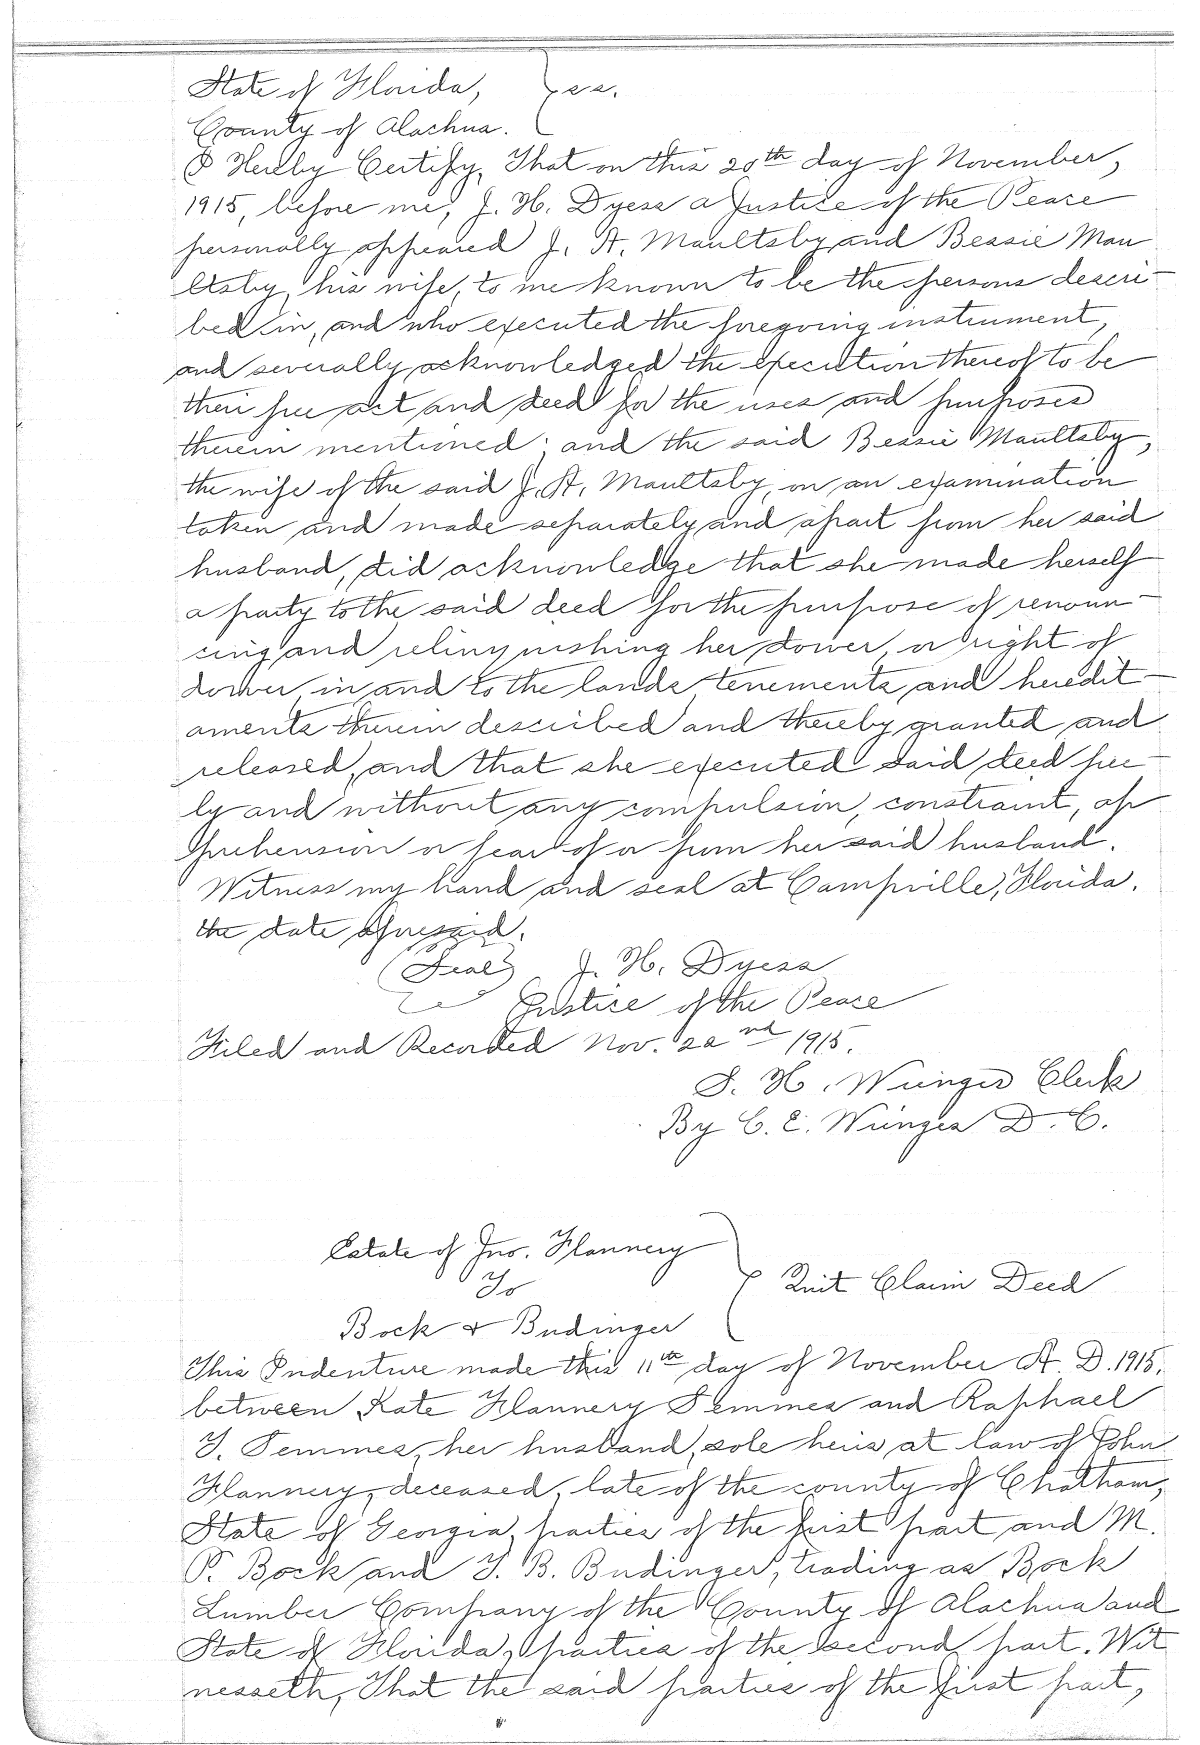 State of Florida, } ss.
County of Alachua.
I Hereby Certify, That on this 20th day of November,
1915, before me, J. H. Dyess a Justice of the Peace
personally appeared J. A. Maultsby and Bessie Mau
ltsby, his wife, to me known to be the persons descri-
bed in, and who executed the foregoing instrument,
and severally acknowledged the execution thereof to be
their free act and deed for the uses and purposes
therein mentioned; and the said Bessie Maultsby,
the wife of the said J. A. Maultsby, on an examination
taken and made separately and apart from her said
husband, did acknowledge that she made herself
a party to the said deed for the purpose of renoun-
cing and relinquishing her dower, or right of
dower, in and to the lands, tenements and heredit-
aments therein described and thereby granted and
released, and that she executed said deed free-
ly and without any compulsion, constraint, ap
prehension or fear of or from her said husband.
Witness my hand and seal at Campville, Florida.
the date aforesaid.
(Seal) J. H. Dyess
Justice of the Peace
Filed and Recorded Nov. 22nd 1915.
S. H. Wienges Clerk
By C. E. Wienges D. C.
Estate of Jno. Flannery
To } Quit Claim Deed
Bock & Budinger
This Indenture made this 11th day of November A. D. 1915.
between Kate Flannery Semmes and Raphael
T. Semmes, her husband, sole heirs at law of John
Flannery, deceased, late of the county of Chatham,
State of Georgia, parties of the first part and M.
P. Bock and T. B. Budinger, trading as Bock
Lumber Company of the County of Alachua and
State of Florida, parties of the second part. Wit
nesseth, That the said parties of the first part,